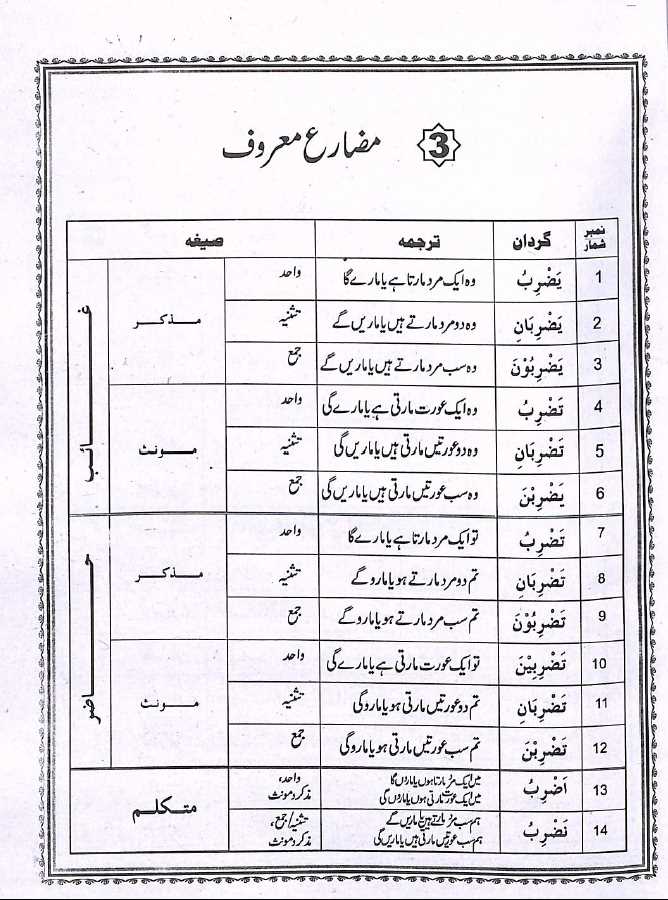 3 مضارع معروف
نمبر شمار گردان ترجمہ صیغہ
1 يَضْرِبُ وہ ایک مرد مارتا ہے یا مارے گا واحد
2 يَضْرِبَانِ وہ دو مرد مارتے ہیں یا ماریں گے تثنیہ مذکر
3 يَضْرِبُوْنَ وہ سب مرد مارتے ہیں یا ماریں گے جمع
غائب
4 تَضْرِبُ وہ ایک عورت مارتی ہے یا مارے گی واحد
5 تَضْرِبَانِ وہ دو عورتیں مارتی ہیں یا ماریں گی تثنیہ مونث
6 يَضْرِبْنَ وہ سب عورتیں مارتی ہیں یا ماریں گی جمع
7 تَضْرِبُ تو ایک مرد مارتا ہے یا مارے گا واحد
8 تَضْرِبَانِ تم دو مرد مارتے ہو یا مارو گے تثنیہ مذکر
9 تَضْرِبُوْنَ تم سب مرد مارتے ہو یا مارو گے جمع
حاضر
10 تَضْرِبِيْنَ تو ایک عورت مارتی ہے یا مارے گی واحد
11 تَضْرِبَانِ تم دو عورتیں مارتی ہو یا مارو گی تثنیہ مونث
12 تَضْرِبْنَ تم سب عورتیں مارتی ہو یا مارو گی جمع
13 اَضْرِبُ میں ایک مرد مارتا ہوں یا ماروں گا واحد،
میں ایک عورت مارتی ہوں یا ماروں گی مذکر و مونث
متکلم
14 نَضْرِبُ ہم سب مرد مارتے ہیں یا ماریں گے تثنیہ/جمع،
ہم سب عورتیں مارتی ہیں یا ماریں گی مذکر و مونث